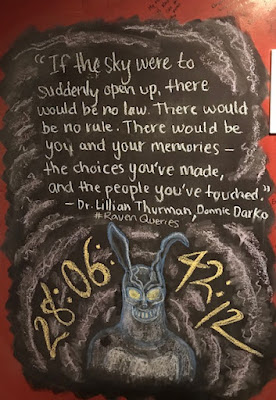 "If the sky were to
suddenly open up, there
would be no law. There would
be no rule. There would be
you and your memories –
the choices you've made,
and the people you've touched."
– Dr. Lillian Thurman, Donnie Darko
#RavenQueries
28:06:
42:12